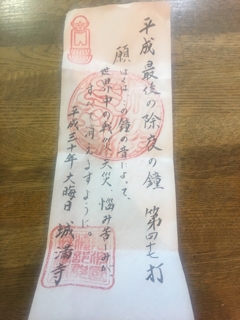 平成最後の除夜の鐘 第四十七打
願はくは この鐘の音によって、
世界中の戦災、天災、悩み苦しみが
消えますように。
平成三十年大晦日 城満寺